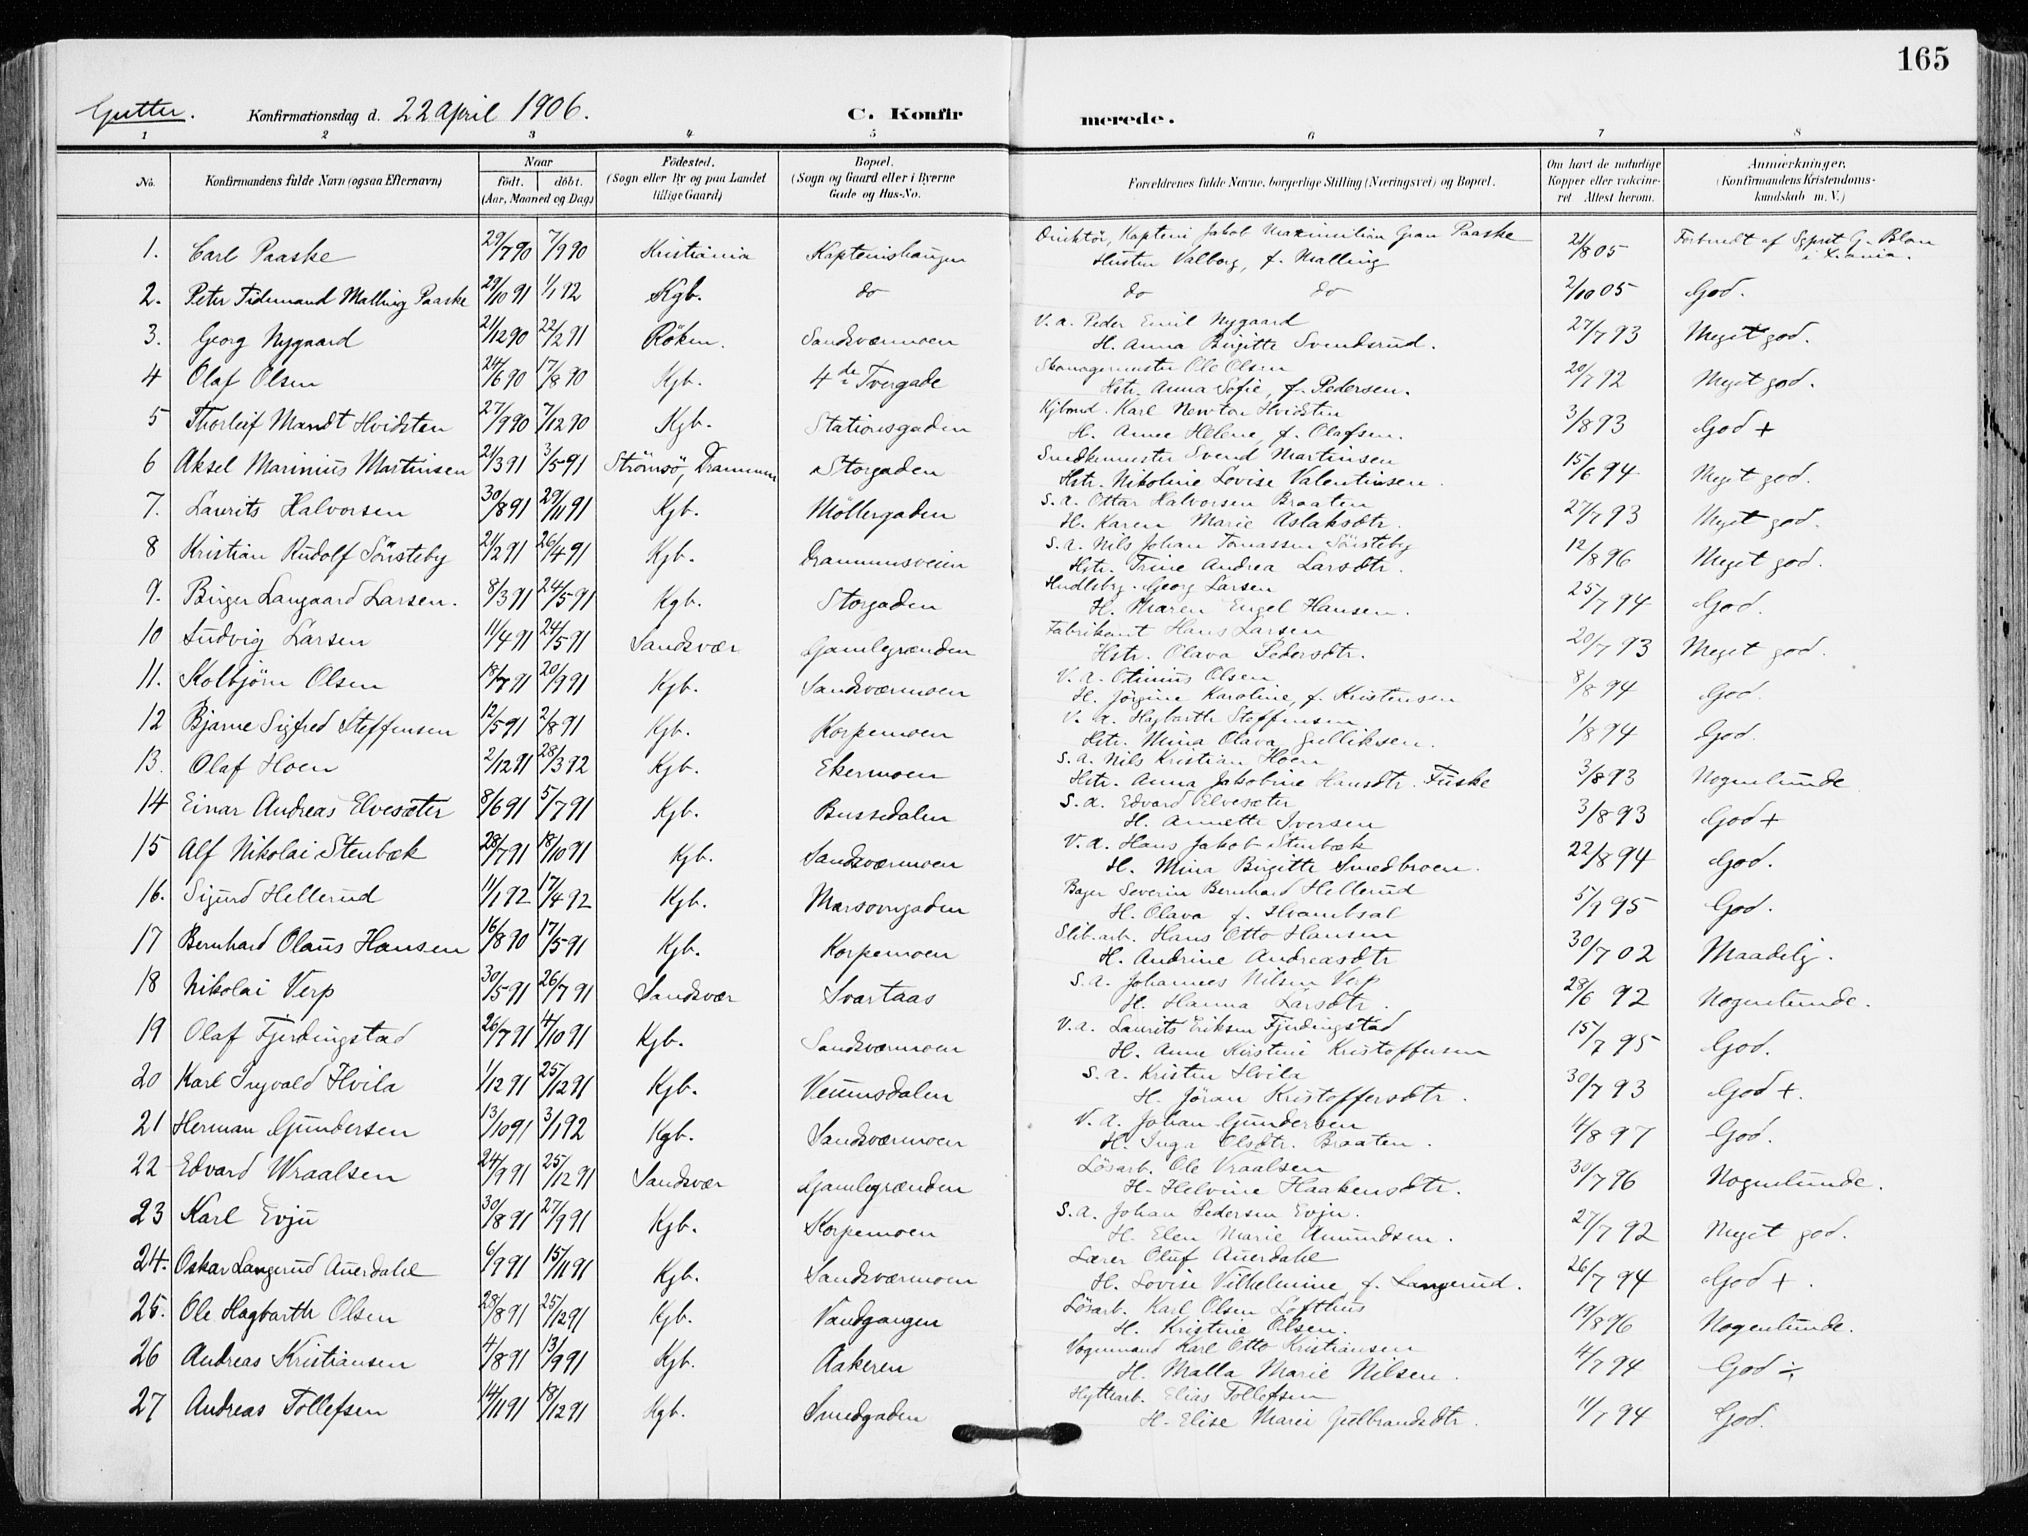 165
Gutter. Konfirmationsdag d. 22 April 1906. C. Konfir merede.
1 2 3 4 5 6 7 8
No. Konfirmandens fulde Navn (ogsaa Efternavn) Naar født. døbt. (Aar, Maaned og Dag) Fødested. (Sogn eller By og paa Landet tillige Gaard) Bopæl. (Sogn og Gaard eller i Byerne Gade og Hus-No. Forældrenes fulde Navne, borgerlige Stilling (Næringsvei) og Bopæl. Om havt de naturlige Kopper eller vakcineret Attest herom. Anmærkninger. (Konfirmandens Kristendomskundskab m. V.)
1. Carl Paaske 29/7 90 7/9 90 Kristiania Kapteinshaugen Direktör, Kaptein Jakob Maximilian Gran Paaske 21/8 05 Forberedt af Sgprst G. Blom
Hustru Valborg, f. Malling i Xania.
2. Peter Tidemand Malling Paaske 29/10 91 1/1 92 Kgb. do do do 2/10 05 God.
3. Georg Nygaard 21/12 90 22/2 91 Röken. Sandsværmoen V. a. Peder Emil Nygaard 27/7 93 Meget god.
H. Anna Birgitte Svendsrud.
4 Olaf Olsen 24/6 90 17/8 90 Kgb. 4de Tvergade Skomagermester Ole Olsen 20/7 92 Meget god.
Hstr. Anna Sofie, f. Pedersen.
5 Thorleif Mandt Hvidsten 27/9 90 7/12 90 Kgb. Stationsgaden Kjbmd. Karl Newton Hvidsten 3/8 93 God +
H. Anne Helene, f. Olafsen.
6 Aksel Marinius Martinsen 21/3 91 3/5 91 Strömsö, Drammen Storgaden Smedkemester Svend Martinsen 15/6 94 Meget god.
Hstr. Nikoline Lovise Valentinsen.
7. Laurits Halvorsen 30/8 91 29/11 91 Kgb. Möllergaden S. a. Ottar Halvorsen Braaten 27/7 93 Meget god.
H. Karen Marie Aslaksdtr.
8 Kristian Rudolf Sönsteby 21/2 91 26/4 91 Kgb. Drammensveien S. a. Nils Johan Tomassen Sönsteby 12/8 96 Meget god.
Hstr. Trine Andrea Larsdtr.
9. Birger Langaard Larsen. 8/3 91 24/5 91 Kgb. Storgaden Hndlsbg. Georg Larsen 25/7 94 God.
H. Maren Engel Hansen.
10 Ludvig Larsen 11/4 91 24/5 91 Sandsvær Gamlegrænden Fabrikant Hans Larsen 20/7 93 Meget god.
Hstr. Olava Pedersdtr.
11. Kolbjörn Olsen 18/7 91 20/9 91 Kgb. Sandsværmoen V. a. Otinius Olsen 8/8 94 God.
H. Jörgine Karoline, f. Kristensen
12 Bjarne Sigfred Steffensen 12/5 91 2/8 91 Kgb. Korpemoen V. a. Hagbarth Steffensen 1/8 94 God.
Hstr. Mina Olava Gulliksen.
13. Olaf Hoen 2/12 91 28/3 92 Kgb. Ekermoen S. a. Nils Kristian Hoen 3/8 93 Nogenlunde
Hstr. Anna Jakobine Hansdtr. Fuske
14 Einar Andreas Elvesæter 8/6 91 5/7 91 Kgb. Bussedalen S. a. Edvard Elvesæter 3/8 93 God +
H. Annette Iversen
15 Alf Nikolai Stenbæk 28/7 91 18/10 91 Kgb. Sandsværmoen V. a. Hans Jakob Stenbæk 22/8 94 God.
H. Mina Birgitte Smedbroen.
16. Sigurd Hellerud 11/1 92 17/4 92 Kgb. Marsovngaden Bager Severin Bernhard Hellerud 5/7 95 God.
H. Olava f. Hvambsal
17 Bernhard Olaus Hansen 16/8 90 17/5 91 Kgb. Korpemoen Slib. arb. Hans Otto Hansen 30/7 02 Maadelig.
H. Andrine Andreasdtr
18 Nikolai Verp 30/5 91 26/7 91 Sandsvær Svartaas S. a. Johannes Nilsen Verp 28/6 92 Nogenlunde.
H. Hanna Larsdtr.
19 Olaf Fjerdingstad 26/7 91 4/10 91 Kgb. Sandsværmoen V. a. Laurits Eriksen Fjerdingstad 15/7 95 God.
H. Anne Kirstine Kristoffersen
20 Karl Ingvald Hvila 1/12 91 25/12 91 Kgb. Venusdalen S. a. Kristen Hvila 30/7 93 God +.
H. Jöran Kristoffersdtr.
21 Herman Gundersen 13/10 91 3/1 92 Kgb. Sandsværmoen V. a. Johan Gundersen 4/8 97 God.
H. Inga Olsdtr. Braaten.
22 Edvard Wraalsen 24/9 91 25/12 91 Sandsvær Gamlegrænden Lösarb. Ole Vraalsen 30/7 96 Nogenlunde.
H. Helvine Haakensdtr.
23 Karl Evju 30/8 91 27/9 91 Kgb. Korpemoen S. a. Johan Pedersen Evju. 27/7 92 Meget god.
H. Elen Marie Amundsen.
24. Oskar Langerud Auerdahl 6/9 91 15/11 91 Kgb. Sandsværmoen Lærer Oluf Auerdahl 26/7 94 God +.
H. Lovise Vilhelmine f. Langerud.
25. Ole Hagbarth Olsen 28/8 91 25/12 91 Kgb. Vandgangen Lösarb. Karl Olsen Lofthus 19/8 96 Nogenlunde.
H. Kristine Olsen.
26 Andreas Kristiansen 4/8 91 13/9 91 Kgb. Aakeren Vognmand Karl Otto Kristiansen 4/7 94 God ÷
H. Malla Marie Nilsen.
27 Andreas Tollefsen 14/11 91 18/12 91 Kgb. Smedgaden Hyttearb. Elias Tollefsen 11/7 94 God.
H. Elise Marie Gulbrandsdtr.